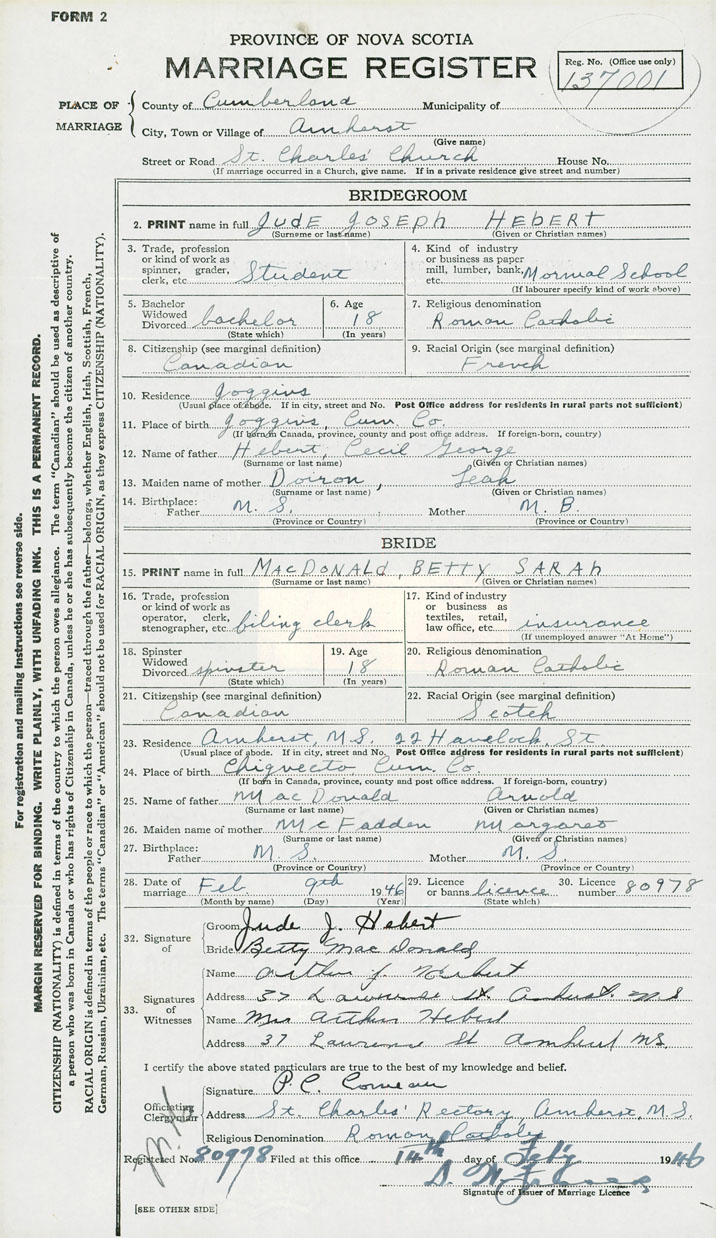 FORM 2
PROVINCE OF NOVA SCOTIA
MARRIAGE REGISTER
Reg. No. (Office use only)
137001
PLACE OF MARRIAGE
County of Cumberland Municipality of
City, Town or Village of Amherst
(Give name)
Street or Road St. Charles' Church House No.
(If marriage occurred in a Church, give name. If in a private residence give street and number)
BRIDEGROOM
2. PRINT name in full JUDE JOSEPH HEBERT
(Surname or last name) (Given or Christian names)
3. Trade, profession or kind of work as spinner, grader, clerk, etc. Student
4. Kind of industry or business as paper mill, lumber, bank, etc. Normal School
(If labourer specify kind of work above)
5. Bachelor Widowed Divorced bachelor
(State which)
6. Age 18
(In years)
7. Religious denomination
Roman Catholic
8. Citizenship (see marginal definition)
Canadian
9. Racial Origin (see marginal definition)
French
10. Residence Joggins
(Usual place of abode. If in city, street and No. Post Office address for residents in rural parts not sufficient)
11. Place of birth Joggins, Cum. Co.
(If born in Canada, province, county and post office address. If foreign-born, country)
12. Name of father Hebert, Cecil George
(Surname or last name) (Given or Christian names)
13. Maiden name of mother Doiron, Leah
(Surname or last name) (Given or Christian names)
14. Birthplace:
Father N. S. Mother N. B.
(Province or Country) (Province or Country)
BRIDE
15. PRINT name in full MACDONALD, BETTY SARAH
(Surname or last name) (Given or Christian names)
16. Trade, profession or kind of work as operator, clerk, stenographer, etc. filing clerk
17. Kind of industry or business as textiles, retail, law office, etc. insurance
(If unemployed answer "At Home")
18. Spinster Widowed Divorced spinster
(State which)
19. Age 18
(In years)
20. Religious denomination
Roman Catholic
21. Citizenship (see marginal definition)
Canadian
22. Racial Origin (see marginal definition)
Scotch
23. Residence Amherst, N.S. 22 Havelock St.
(Usual place of abode. If in city, street and No. Post Office address for residents in rural parts not sufficient)
24. Place of birth Chignecto Cum. Co.
(If born in Canada, province, county and post office address. If foreign-born, country)
25. Name of father MacDonald Arnold
(Surname or last name) (Given or Christian names)
26. Maiden name of mother McFadden Margaret
(Surname or last name) (Given or Christian names)
27. Birthplace:
Father N. S. Mother N. S.
(Province or Country) (Province or Country)
28. Date of marriage Feb 9th 1946
(Month by name) (Day) (Year)
29. Licence or banns licence
(State which)
30. Licence number 80978
32. Signature of
Groom Jude J. Hebert
Bride Betty MacDonald
33. Signatures of Witnesses
Name Arthur J Hebert
Address 37 Lawrence St. Amherst N S
Name Mrs Arthur Hebert
Address 37 Laurence St Amherst NS.
I certify the above stated particulars are true to the best of my knowledge and belief.
Officiating Clergyman
Signature P.C. Comeau
Address St. Charles' Rectory, Amherst, N.S.
Religious Denomination Roman Catholic
Registered No. 80978 Filed at this office 14th day of Feb 1946
Signature of Issuer of Marriage Licence
[SEE OTHER SIDE]
For registration and mailing Instructions see reverse side.
MARGIN RESERVED FOR BINDING. WRITE PLAINLY, WITH UNFADING INK. THIS IS A PERMANENT RECORD.
CITIZENSHIP (NATIONALITY) is defined in terms of the country to which the person owes allegiance. The term "Canadian" should be used as descriptive of
a person who was born in Canada or who has rights of Citizenship in Canada, unless he or she has subsequently become the citizen of another country.
RACIAL ORIGIN is defined in terms of the people or race to which the person—traced through the father—belongs, whether English, Irish, Scottish, French,
German, Russian, Ukrainian, etc. The terms "Canadian" or "American" should not be used for RACIAL ORIGIN, as they express CITIZENSHIP (NATIONALITY).